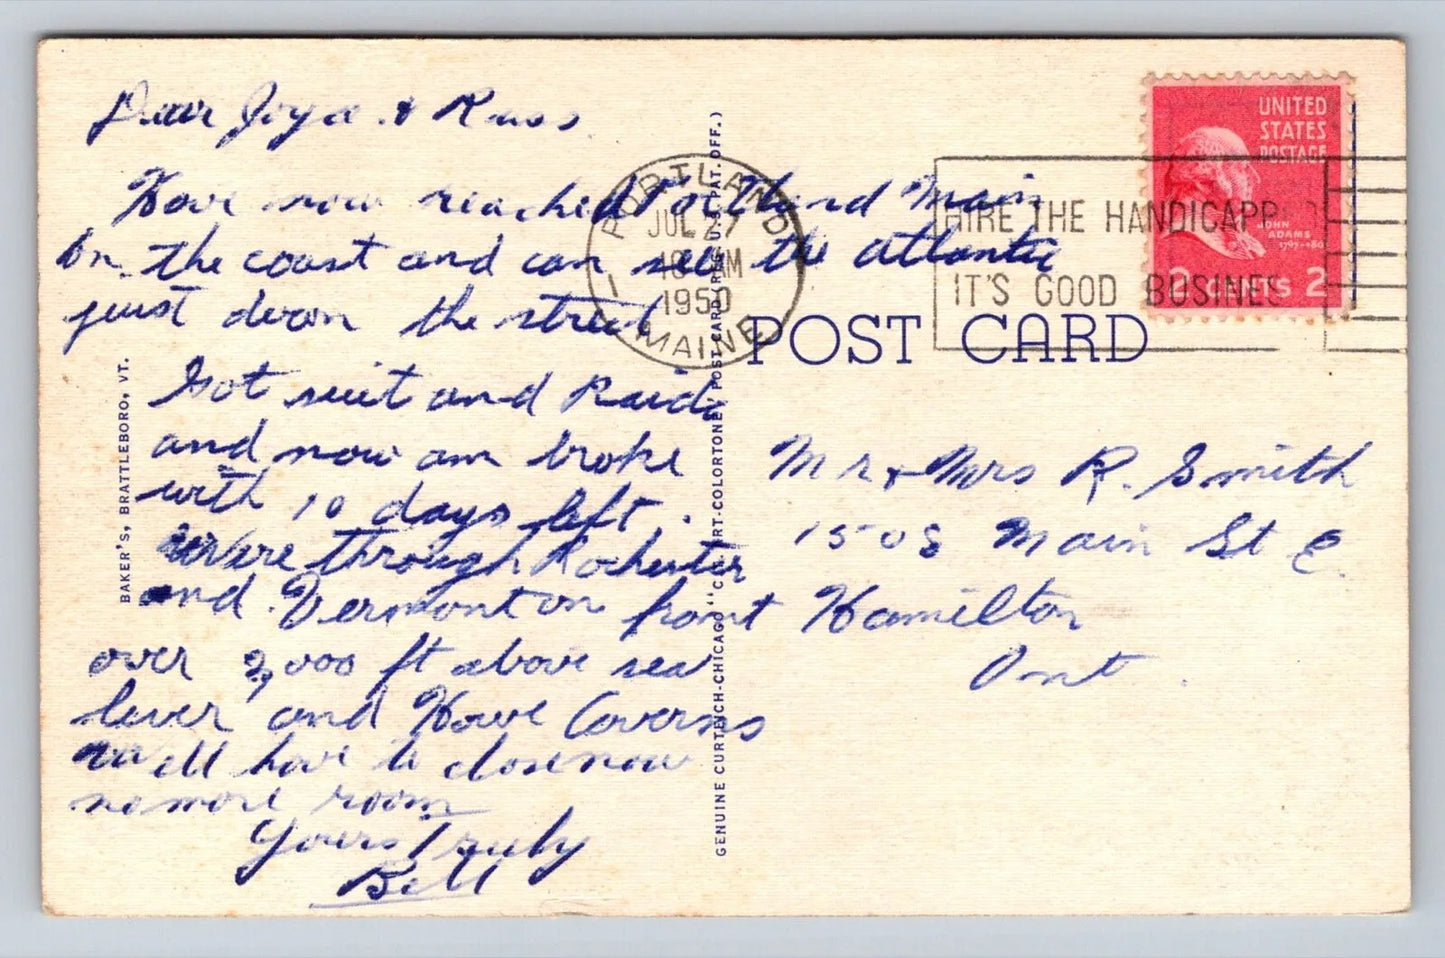 Dear Joyce & Russ
Have now reached Portland Main
on the coast and can see the atlantic
just down the street
Got suit and
and now am broke
with 10 days left.
Were through Rochester
and Vermont on front
over 2,000 ft above sea
lever and Howe Caverns
well have to close now
no more room
Yours Truly
Bill
BAKER'S, BRATTLEBORO, VT.
GENUINE CURTEICH-CHICAGO "C.T. ART-COLORTONE" POST CARD (REG. U.S. PAT. OFF.)
PORTLAND
JUL 27
10 AM
1950
MAINE
HIRE THE HANDICAPP
IT'S GOOD BUSINES
UNITED
STATES
POSTAGE
JOHN
ADAMS
1797-180
2 CENTS 2
POST CARD
Mr & Mrs R. Smith
1508 Main St E.
Hamilton
Ont.